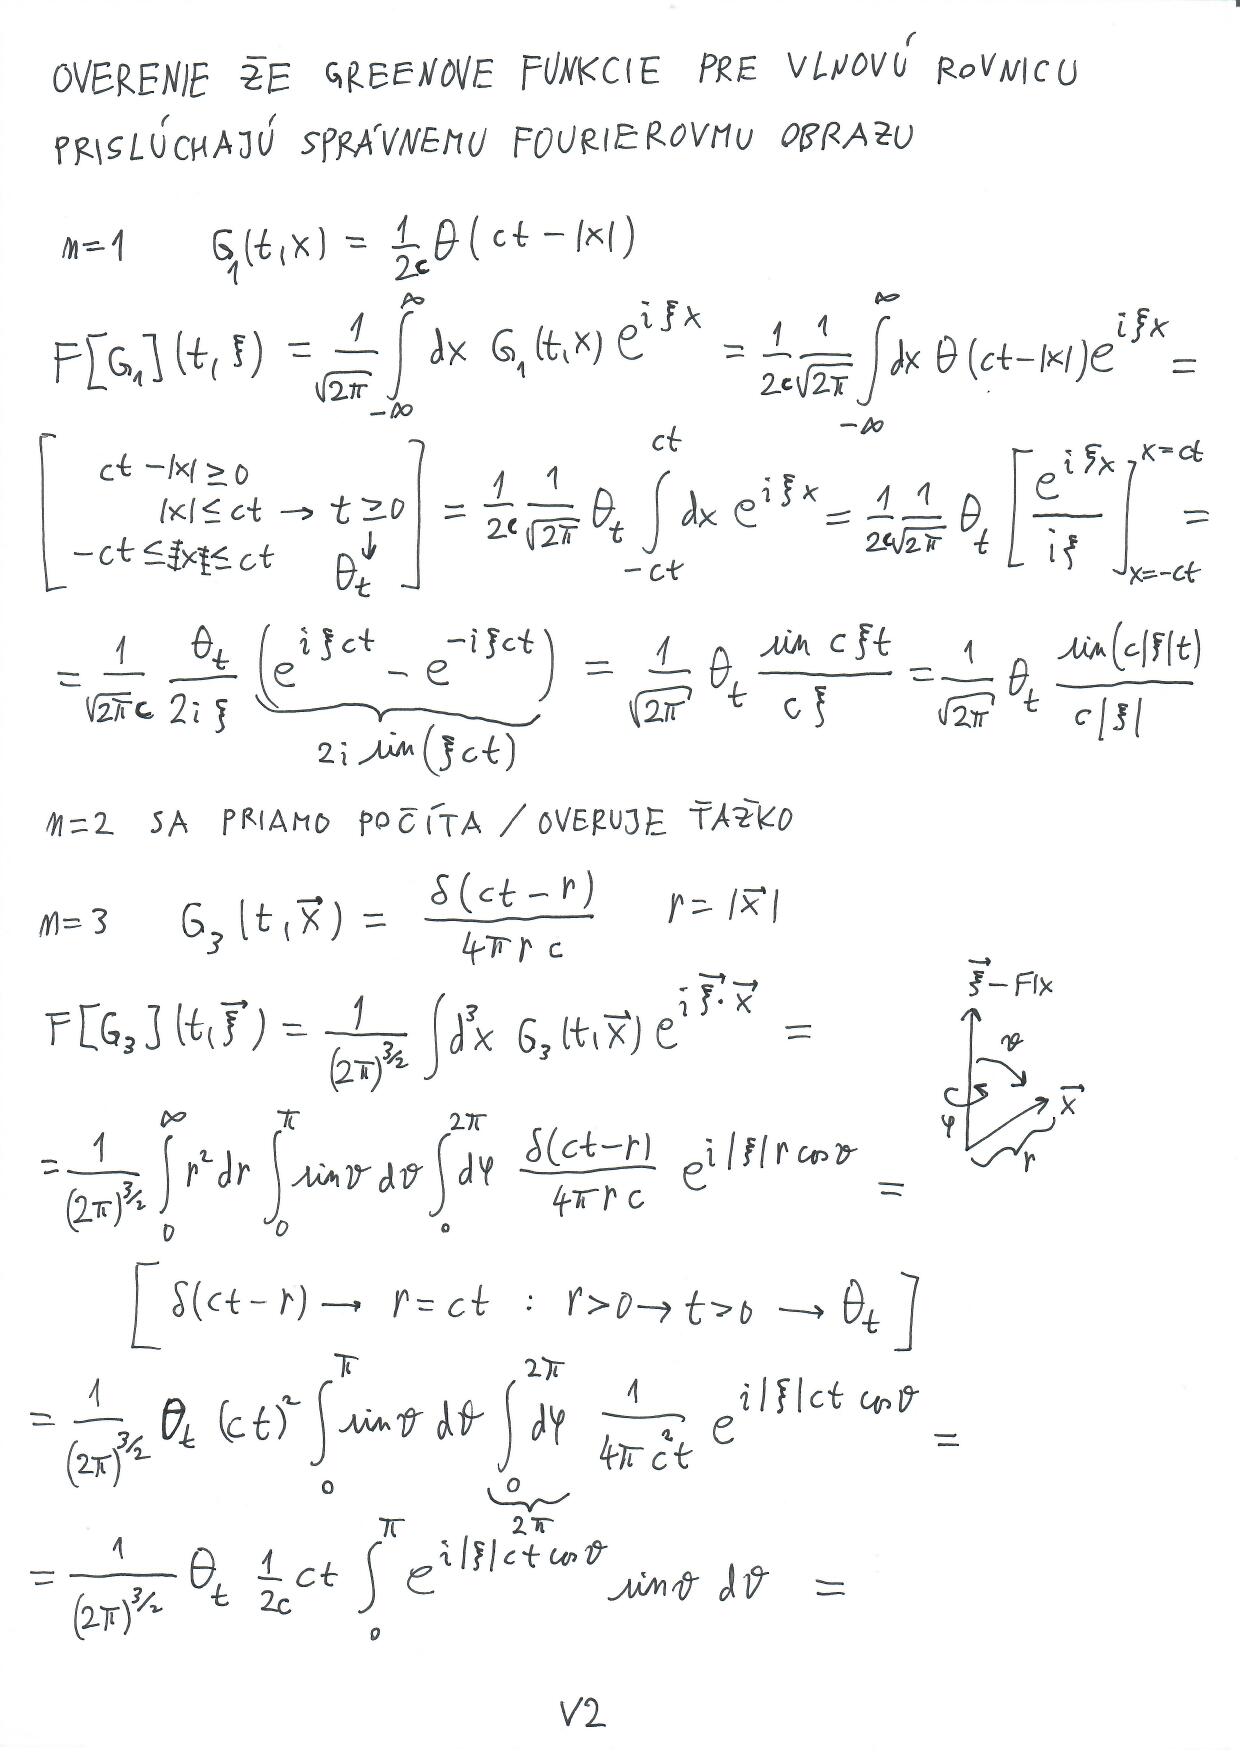 OVERENIE ŽE GREENOVE FUNKCIE PRE VLNOVÚ ROVNICU
PRISLÚCHAJÚ SPRÁVNEMU FOURIEROVMU OBRAZU
n=1 G₁(t,x) = 1/2c θ(ct - |x|)
F[G₁](t,ξ) = 1/√2π ∫_{-∞}^{∞} dx G₁(t,x) e^{iξx} = 1/2c 1/√2π ∫_{-∞}^{∞} dx θ(ct-|x|) e^{iξx} =
[ ct - |x| ≥ 0
|x| ≤ ct → t ≥ 0
-ct ≤ x ≤ ct θ_t ] = 1/2c 1/√2π θ_t ∫_{-ct}^{ct} dx e^{iξx} = 1/2c 1/√2π θ_t [e^{iξx}/iξ]_{x=-ct}^{x=ct} =
= 1/√2π c θ_t/2iξ (e^{iξct} - e^{-iξct}) = 1/√2π θ_t sin cξt/cξ = 1/√2π θ_t sin(c|ξ|t)/c|ξ|
2i sin(ξct)
n=2 SA PRIAMO POČÍTA / OVERUJE ŤAŽKO
n=3 G₃(t,x⃗) = δ(ct-r)/4πrc r = |x⃗|
F[G₃](t,ξ⃗) = 1/(2π)^{3/2} ∫d³x G₃(t,x⃗) e^{iξ⃗·x⃗} =
ξ⃗ - FIX
ϑ
x⃗
φ
r
= 1/(2π)^{3/2} ∫_0^∞ r² dr ∫_0^π sinϑ dϑ ∫_0^{2π} dφ δ(ct-r)/4πrc e^{i|ξ|r cosϑ} =
[ δ(ct-r) → r = ct : r>0 → t>0 → θ_t ]
= 1/(2π)^{3/2} θ_t (ct)² ∫_0^π sinϑ dϑ ∫_0^{2π} dφ 1/4πc²t e^{i|ξ|ct cosϑ} =
2π
= 1/(2π)^{3/2} θ_t 1/2c ct ∫_0^π e^{i|ξ|ct cosϑ} sinϑ dϑ =
V2